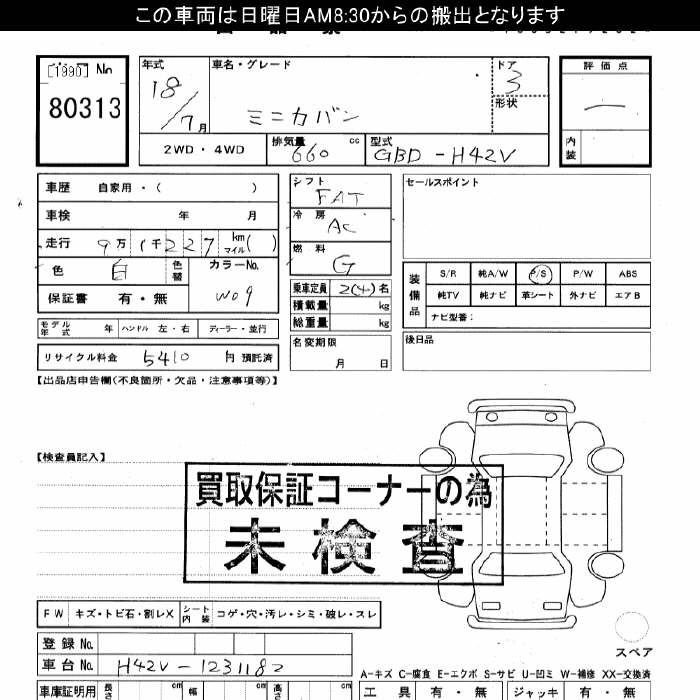 この車両は日曜日AM8:30からの搬出となります
[1990] No
80313
年式
18/7月
車名・グレード
ミニカバン
ドア
3
形状
評価点
—
内装
2WD・4WD
排気量
660 cc
型式
GBD-H42V
車歴 自家用・( )
車検 年 月
走行 9万1千227 km マイル( )
色 白 色替
カラーNo.
W09
保証書 有・無
シフト
FAT
冷房
AC
燃料
G
乗車定員 2(4)名
積載量 kg
総重量 kg
名変期限
月 日
セールスポイント
装備品
S/R 純A/W P/S P/W ABS
純TV 純ナビ 革シート 外ナビ エアB
ナビ型番:
後日品
モデル年式 年 ハンドル 左・右 ディーラー・並行
リサイクル料金 5410 円 預託済
【出品店申告欄(不良箇所・欠品・注意事項等)】
【検査員記入】
買取保証コーナーの為
未検査
FW キズ・トビ石・割レX シート内装 コゲ・穴・汚レ・シミ・破レ・スレ
スペア
登録No.
車台No. H42V-1231182
A-キズ C-腐食 E-エクボ S-サビ U-凹ミ W-補修 XX-交換済
車庫証明用 長さ cm 幅 cm 高さ cm
工具 有・無 ジャッキ 有・無